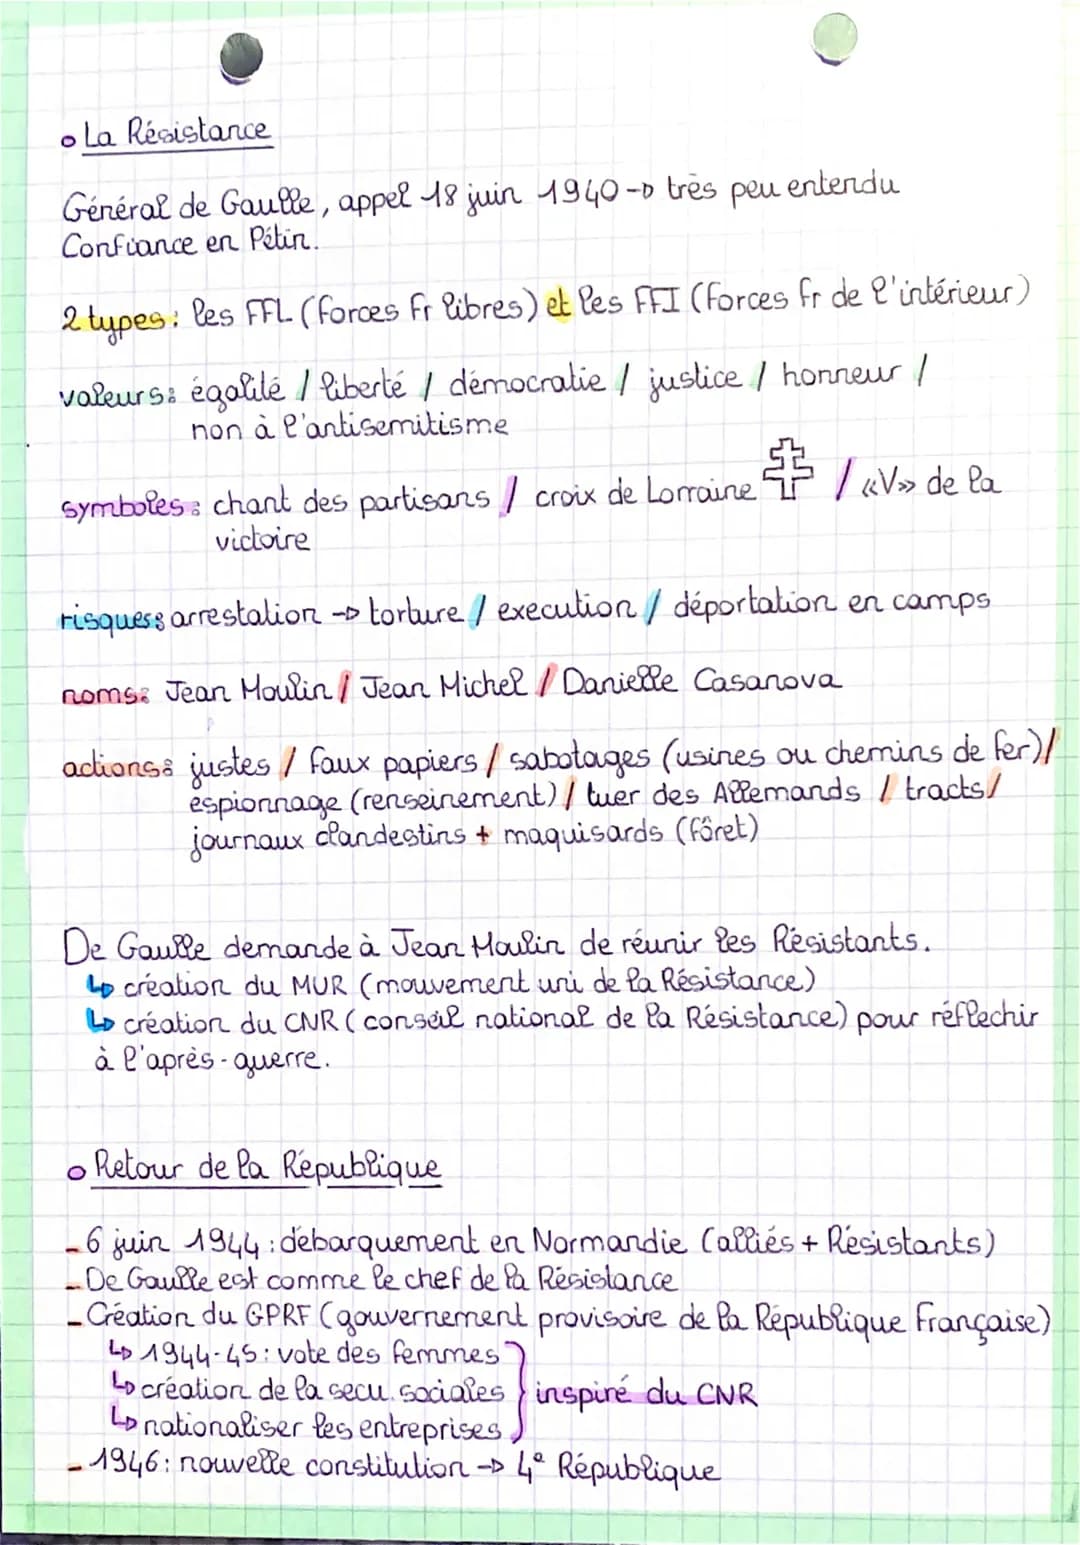 La Résistance
Général de Gaulle, appel 18 juin 1940 → très peu entendu
Confiance en Pétin.
2 types : les FFL (forces Fr libres) et les FFI (forces Fr de l'intérieur)
valeurs : égalité / liberté / démocratie / justice / honneur /
non à l'antisemitisme
symboles : chant des partisans / croix de Lorraine / «V» de la
victoire
risques : arrestation → torture / execution / déportation en camps
noms : Jean Moulin / Jean Michel / Danielle Casanova
actions : justes / faux papiers / sabotages (usines ou chemins de fer) /
espionnage (renseinement) / tuer des Allemands / tracts /
journaux clandestins + maquisards (fôret)
De Gaulle demande à Jean Moulin de réunir les Résistants.
↳ création du MUR (mouvement uni de la Résistance)
↳ création du CNR (conseil national de la Résistance) pour réflechir
à l'après-guerre.
Retour de la République
- 6 juin 1944 : débarquement en Normandie (alliés + Résistants)
- De Gaulle est comme le chef de la Résistance
- Création du GPRF (gouvernement provisoire de la République Française)
↳ 1944-45 : vote des femmes
↳ création de la secu. sociales } inspiré du CNR
↳ nationaliser les entreprises
- 1946 : nouvelle constitution → 4e République